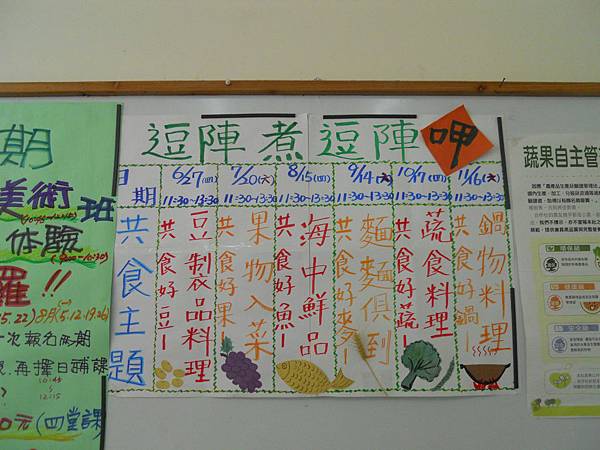 逗陣煮 逗陣呷
日期
6/27(四)
11:30-13:30
7/20(六)
11:30-13:30
8/15(四)
11:30-13:30
9/14(六)
11:30-13:30
10/17(四)
11:30-13:30
11/16(六)
11:30-13:30
共食主題
共食好豆–
豆製品料理
共食好果–
果物入菜
共食好魚–
海中鮮品
共食好麥–
麵麵俱到
共食好蔬–
蔬食料理
共食好鍋–
鍋物料理
期
美術班
體驗
羅!!
8月(5.12.19.26)
再擇日補課
10:45
~
12:15
0元(四堂課)
蔬果自主管
環保級
健康級
安全級